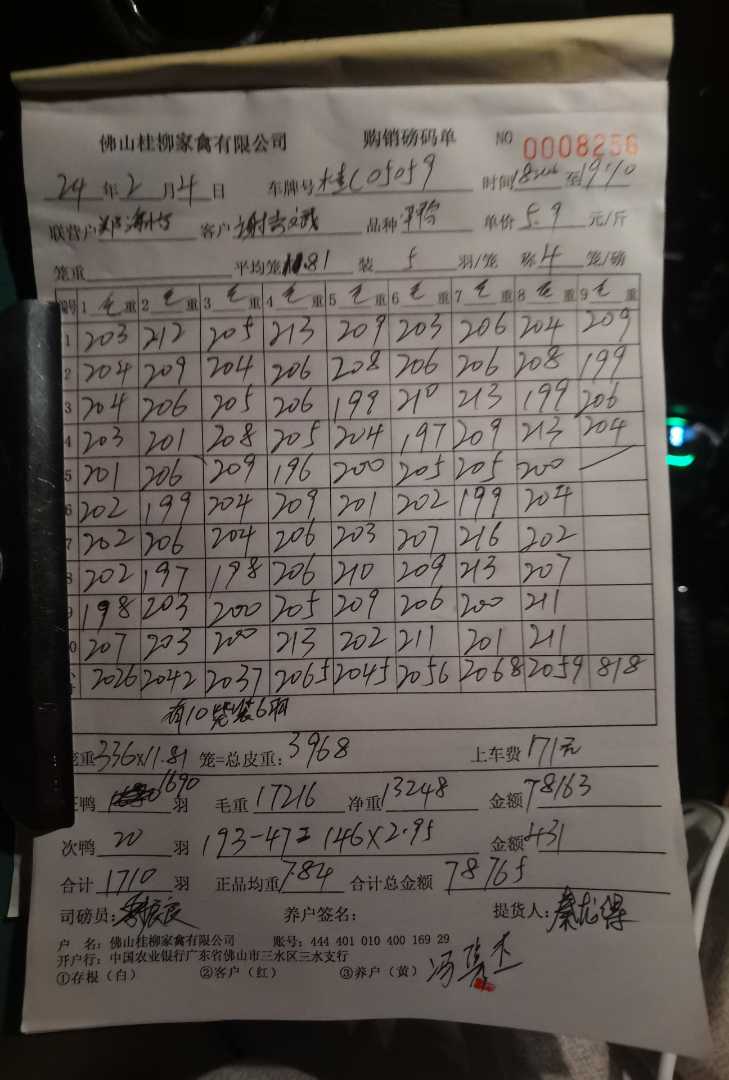 佛山桂柳家禽有限公司 购销磅码单 NO 0008256
24 年 2 月 4 日 车牌号 桂C05059 时间 至 19:10
联营户 客户 品种 单价 5.9 元/斤
笼重 平均笼 11.81 装 5 羽/笼 称 4 笼/磅
编号 1 毛重 2 毛重 3 毛重 4 毛重 5 毛重 6 毛重 7 毛重 8 毛重 9 毛重
1 203 212 205 213 209 203 206 204 209
2 204 209 204 206 208 206 206 208 199
3 204 206 205 206 199 210 213 199 206
4 203 201 208 205 204 197 209 213 204
5 201 206 209 196 200 205 205 200
6 202 199 204 209 201 202 199 204
7 202 206 204 206 203 207 216 202
8 202 197 198 206 210 209 213 207
9 198 203 200 205 209 206 200 211
10 207 203 200 213 202 211 201 211
2026 2042 2037 2065 2045 2056 2068 2059 818
有10笼装6羽
笼重 336×11.81 笼=总皮重: 3968 上车费 171元
正鸭 1690 羽 毛重 17216 净重 13248 金额 78163
次鸭 20 羽 193-47=146×2.95 金额 431
合计 1710 羽 正品均重 7.84 合计总金额 78765
司磅员: 养户签名: 提货人: 秦龙得
户 名: 佛山桂柳家禽有限公司 账号: 444 401 010 400 169 29
开户行: 中国农业银行广东省佛山市三水区三水支行
①存根（白） ②客户（红） ③养户（黄）